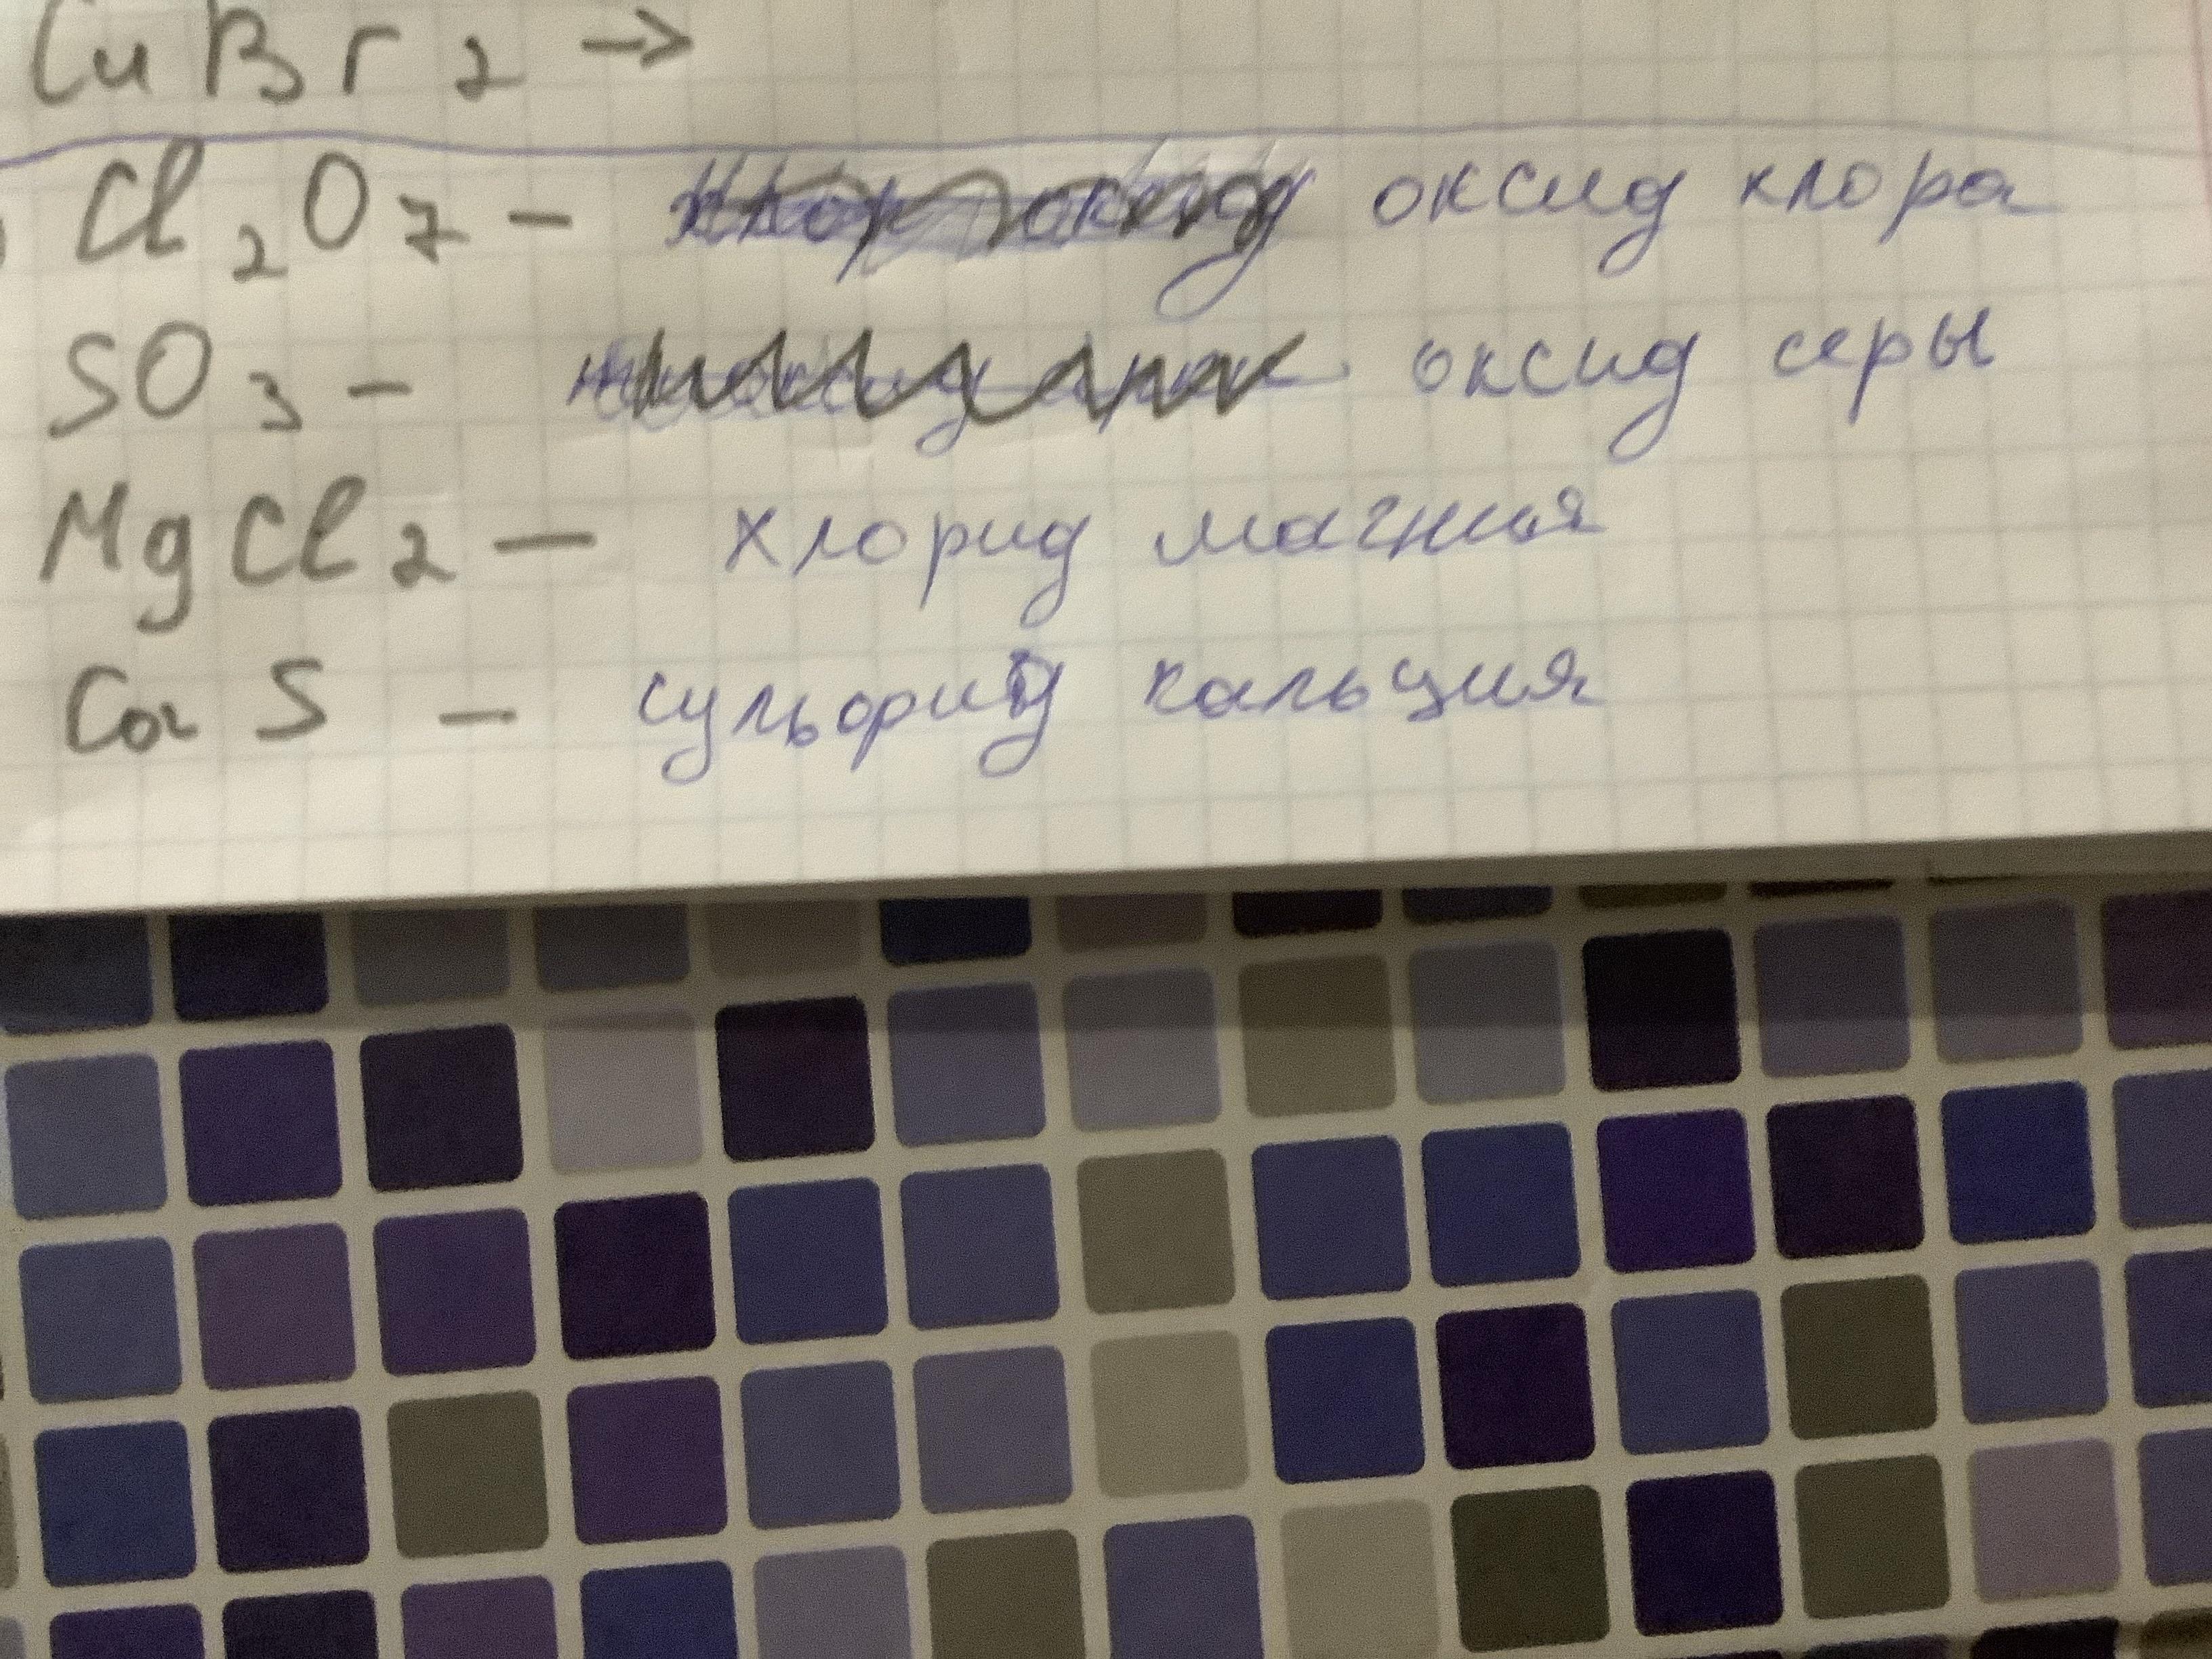 CuBr2 →
Cl2O7 - хлор оксид оксид хлора
SO3 - оксид серы
MgCl2 — хлорид магния
CaS — сульфид кальция